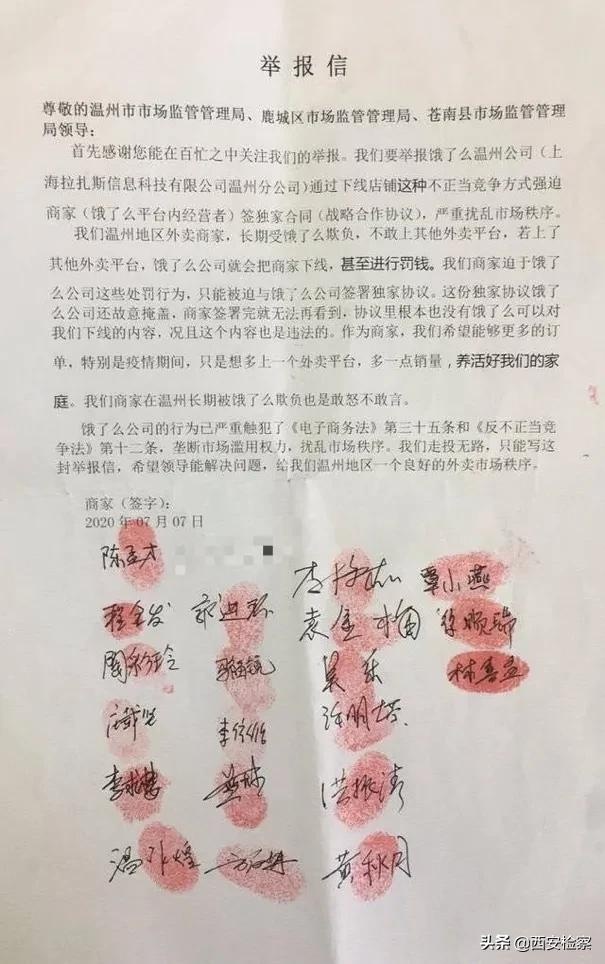 举报信
尊敬的温州市市场监管管理局、鹿城区市场监管管理局、苍南县市场监管管理
局领导：
首先感谢您能在百忙之中关注我们的举报。我们要举报饿了么温州公司（上
海拉扎斯信息科技有限公司温州分公司）通过下线店铺这种不正当竞争方式强迫
商家（饿了么平台内经营者）签独家合同（战略合作协议），严重扰乱市场秩序。
我们温州地区外卖商家，长期受饿了么欺负，不敢上其他外卖平台，若上了
其他外卖平台，饿了么公司就会把商家下线，甚至进行罚钱。我们商家迫于饿了
么公司这些处罚行为，只能被迫与饿了么公司签署独家协议。这份独家协议饿了
么公司还故意掩盖，商家签署完就无法再看到，协议里根本也没有饿了么可以对
我们下线的内容，况且这个内容也是违法的。作为商家，我们希望能够更多的订
单，特别是疫情期间，只是想多上一个外卖平台，多一点销量，养活好我们的家
庭。我们商家在温州长期被饿了么欺负也是敢怒不敢言。
饿了么公司的行为已严重触犯了《电子商务法》第三十五条和《反不正当竞
争法》第十二条，垄断市场滥用权力，扰乱市场秩序。我们走投无路，只能写这
封举报信，希望领导能解决问题，给我们温州地区一个良好的外卖市场秩序。
商家（签字）：
2020年07月07日
覃小燕
袁金梅 徐顺瑞
林善孟
吴乐
徐明塔
洪振涛
黄秋月
头条 @西安检察